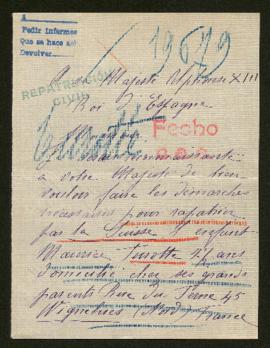 A
Pedir informes
Que se hace así
Devolver
19679
REPATRIACION
CIVIL
Majeste Alphonse XIII
Roi d'Espagne
Fecho
Turotte
reconnaissante
à votre Majeste de bien
vouloir faire les demarches
necessaires pour rapatrier
par la Suisse l'enfant
Maurice Turotte
ans
domicilié chez ses grands
parents Rue du 45
Wignehies (Nord) France